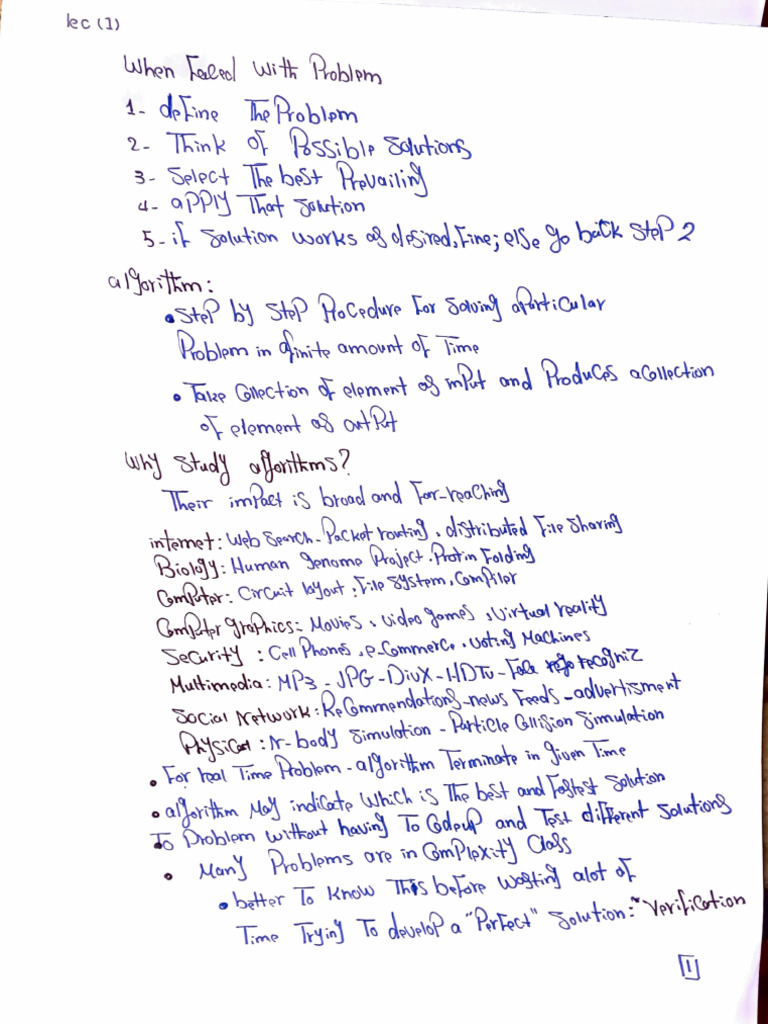 lec (1)
When Faced With Problem
1- define The Problem
2- Think of Possible Solutions
3- Select The best Prevailing
4- apply That solution
5- if solution works as desired, fine; else go back step 2
algorithm:
• Step by step Procedure for solving a Particular
Problem in afinite amount of Time
• Take Collection of element as input and Produces a collection
of element as output
Why study algorithms?
Their impact is broad and far-reaching
internet: Web search - Packet routing, distributed file sharing
Biology: Human genome Project. Protin folding
Computer: Circuit layout, file system, Compiler
Computer graphics: Movies, video games, virtual reality
Security : Cell Phones, e-commerce, voting Machines
Multimedia: MP3 - JPG - DivX - HDTV - Face recogniz
Social Network: Recommendations - news feeds - advertisment
Physical : N-body simulation - Particle collision simulation
• For real Time Problem - algorithm Terminate in given Time
• algorithm May indicate which is The best and fastest solution
To Problem without having To Codeup and Test different solutions
• Many Problems are in Complexity Class
• better To know This before wasting alot of
Time Trying To develop a "Perfect" solution: Verification
[1]